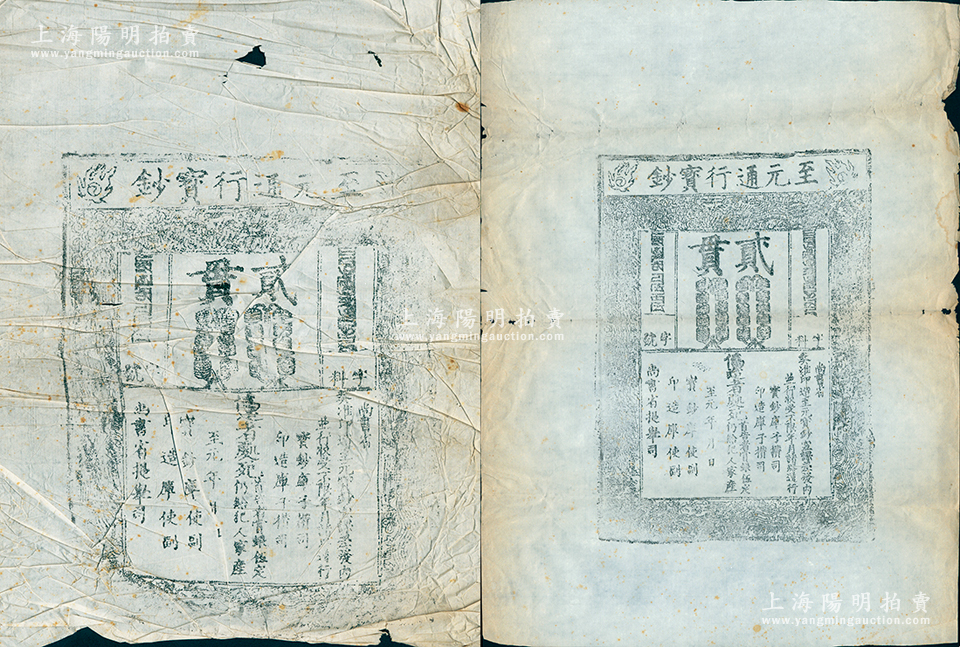 上海陽明拍賣
www.yangmingauction.com
至元通行寶鈔
貳貫
字料
字號
尚書省
偽造者處死
仍給犯人家產
至元 年 月 日
寶鈔庫子攢司
印造庫子攢司
寶鈔庫使副
印造庫使副
尚書省提舉司
上海陽明拍賣
www.yangmingauction.com
至元通行寶鈔
貳貫
字料
字號
尚書省
奏准印造至元寶鈔宣課差發內
並行收受不限年月諸路通行
寶鈔庫子攢司
印造庫子攢司
偽造者處死
首告者賞銀伍定
仍給犯人家產
至元 年 月 日
寶鈔庫使副
印造庫使副
尚書省提舉司
上海陽明拍賣
www.yangmingauction.com